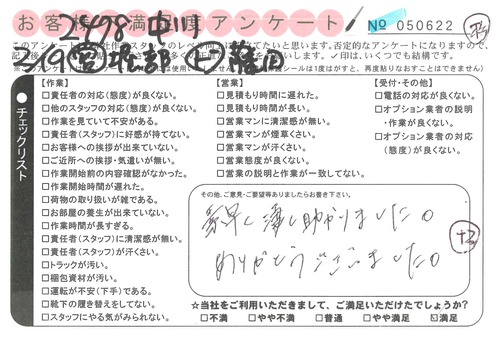 お客様満足度アンケート
№ 050622
2498 中川
【作業】
□責任者の対応(態度)が良くない。
□他のスタッフの対応(態度)が良くない。
□作業を見ていて不安がある。
□責任者(スタッフ)に好感が持てない。
□お客様への挨拶が出来ていない。
□ご近所への挨拶・気遣いが無い。
□作業開始前の内容確認がなかった。
□作業開始時間が遅れた。
□荷物の取り扱いが雑である。
□お部屋の養生が出来ていない。
□作業時間が長すぎる。
□責任者(スタッフ)に清潔感が無い。
□責任者(スタッフ)が汗くさい。
□トラックが汚い。
□梱包資材が汚い。
□運転が不安(下手)である。
□靴下の履き替えをしてない。
□スタッフにやる気がみられない。
【営業】
□見積もり時間に遅れた。
□見積もり時間が長い。
□営業マンに清潔感が無い。
□営業マンが煙草くさい。
□営業マンが汗くさい。
□営業態度が良くない。
□営業の説明と作業が一致してない。
【受付・その他】
□電話の対応が良くない。
□オプション業者の説明
・作業が良くない。
□オプション業者の対応
(態度)が良くない。
チェックリスト
その他、ご意見・ご要望等ありましたらお書き下さい。
助かりました。
ありがとうございました。
☆当社をご利用いただきまして、ご満足いただけたでしょうか?
□不満 □やや不満 □普通 □やや満足 ☑満足